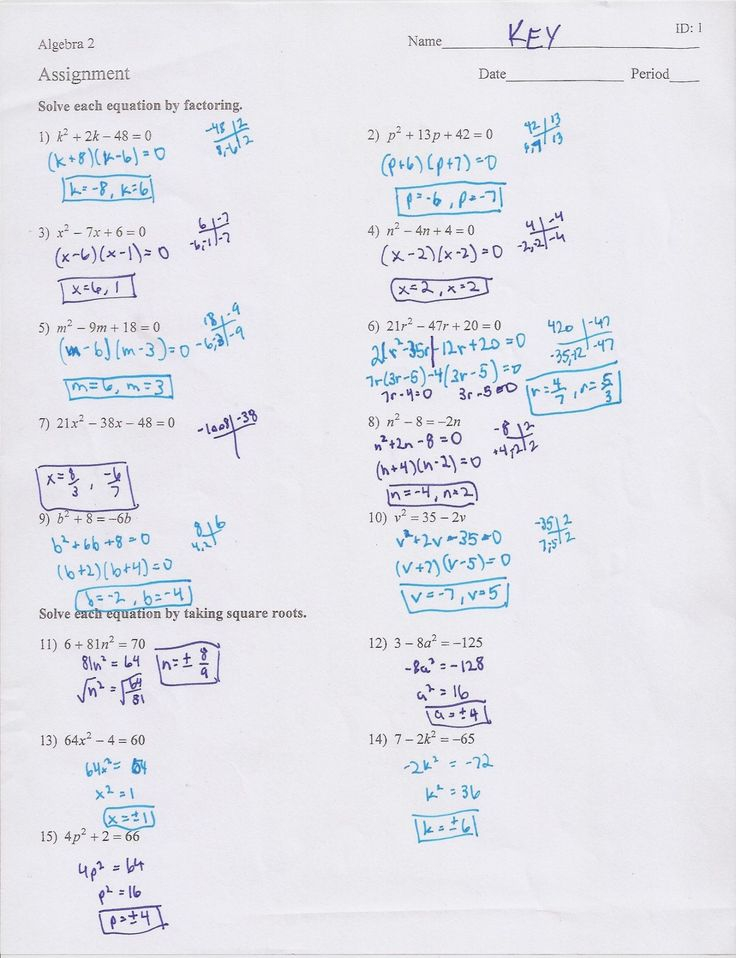 ID: 1
Algebra 2
Name KEY
Assignment
Date Period
Solve each equation by factoring.
1) k² + 2k − 48 = 0
-48 | 2
8,-6 | 2
(k+8)(k-6) = 0
k=-8, k=6
2) p² + 13p + 42 = 0
42 | 13
6,7 | 13
(p+6)(p+7)=0
p=-6, p=-7
3) x² − 7x + 6 = 0
6 | -7
-6,-1 | -7
(x-6)(x-1)=0
x=6, 1
4) n² − 4n + 4 = 0
4 | -4
-2,-2 | -4
(x-2)(x-2)=0
x=2, x=2
5) m² − 9m + 18 = 0
18 | -9
-6,-3 | -9
(m-6)(m-3)=0
m=6, m=3
6) 21r² − 47r + 20 = 0
420 | -47
-35,-12 | -47
21r²-35r-12r+20=0
7r(3r-5)-4(3r-5)=0
7r-4=0 3r-5=0
r=4/7, r=5/3
7) 21x² − 38x − 48 = 0
-1008 | -38
x=8/3, -6/7
8) n² − 8 = −2n
-8 | 2
+4,-2 | 2
n²+2n-8=0
(n+4)(n-2)=0
n=-4, n=2
9) b² + 8 = −6b
8 | 6
4,2
b²+6b+8=0
(b+2)(b+4)=0
b=-2, b=-4
10) v² = 35 − 2v
-35 | 2
7,-5 | 2
v²+2v-35=0
(v+7)(v-5)=0
v=-7, v=5
Solve each equation by taking square roots.
11) 6 + 81n² = 70
81n² = 64
√n² = √64/81
n=± 8/9
12) 3 − 8a² = −125
-8a² = -128
a² = 16
a=±4
13) 64x² − 4 = 60
64x² = 64
x² = 1
x=±1
14) 7 − 2k² = −65
-2k² = -72
k² = 36
k=±6
15) 4p² + 2 = 66
4p² = 64
p² = 16
p=±4